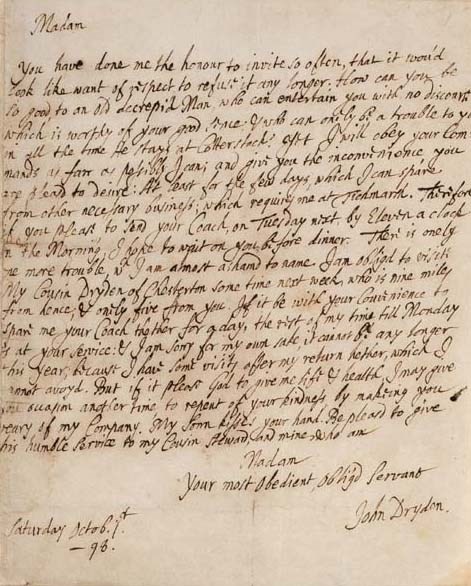 Madam
You have done me the honour to invite so often, that it wou'd
look like want of respect to refuse it any longer. How can you be
so good, to an old decrepid Man, who can entertain you with no discours
which is worthy of your good sence, & who can onely be a trouble to you
in all the time he stays at Cotterstock. Yet I will obey your Com-
mands as farr as possibly I can, and give you the inconvenience you
are pleas'd to desire: At least for the few days, which I can spare
from other necessary business, which requires me at Tichmarsh. Therefore
if you please to send your Coach, on Tuesday next, by Eleven a clock
in the Morning, I hope to wait on you before dinner. There is onely
one more trouble, wch I am almost asham'd to name. I am oblig'd to visite
My Cousin Dryden of Chesterton some time next week, who is nine miles
from hence, & onely five from you. If it be with your Convenience to
spare me your Coach thether for a day, the rest of my time till Monday
is at your service: & I am sorry for my own sake it cannot be any longer
this year, because I have some visits after my return hether, which I
cannot avoyd. But if it please God to give me life & health, I may give
you occasion another time to repent of your kindness by makeing you
weary of my Company. My Sonn kisses your hand. Be pleas'd to give
his humble Service to my Cousin Steward, and mine who am
Madam
Your most Obedient, oblig'd Servant
John Dryden.
Saturday Octob. 1st
—98.